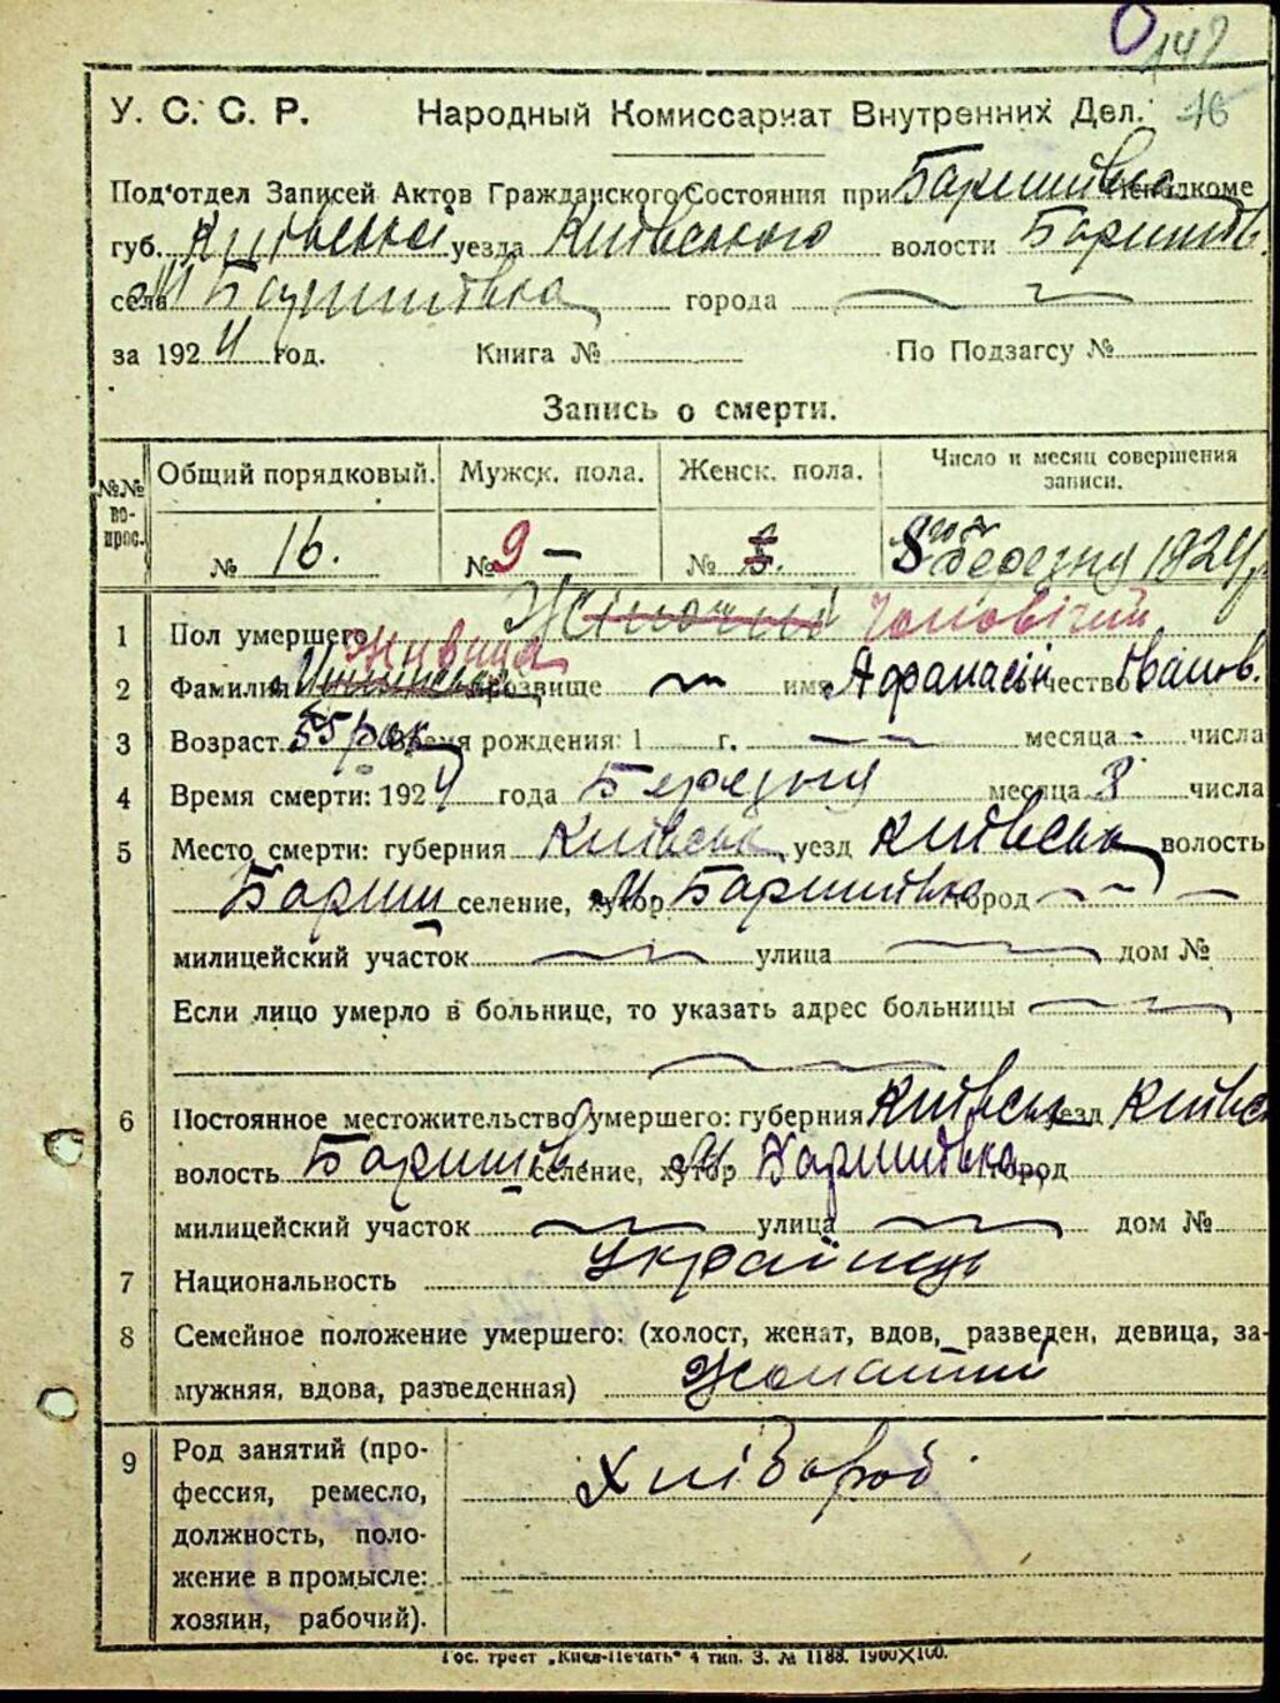 142
У. С. С. Р. Народный Комиссариат Внутренних Дел. 16
Под'отдел Записей Актов Гражданского Состояния при Баришівка Исполкоме
губ. Київської уезда Київського волости Баришів.
села М Баришівка города
за 1924 год. Книга № По Подзагсу №
Запись о смерти.
№№ вопрос. Общий порядковый. Мужск. пола. Женск. пола. Число и месяц совершения записи.
№ 16. № 9 № 8го березня 1924 р
1 Пол умершего Жіночий Чоловічий
Живиця
2 Фамилия прозвище имя Афанасій отчество Іванов.
3 Возраст 55 рок Время рождения: 1 г. месяца числа
4 Время смерти: 1924 года Березня месяца 8 числа
5 Место смерти: губерния Київськ уезд Київськ волость
Бариш селение, хутор М. Баришівка город
милицейский участок улица дом №
Если лицо умерло в больнице, то указать адрес больницы
6 Постоянное местожительство умершего: губерния Київськ уезд Київс
волость Баришів. селение, хутор М. Баришівка город
милицейский участок улица дом №
7 Национальность Українець
8 Семейное положение умершего: (холост, женат, вдов, разведен, девица, за-
мужняя, вдова, разведенная) Жонатий
9 Род занятий (про- Хлібороб
фессия, ремесло,
должность, поло-
жение в промысле:
хозяин, рабочий).
Гос. трест „Киев-Печать“ 4 тип. З. № 1188. 1900X100.